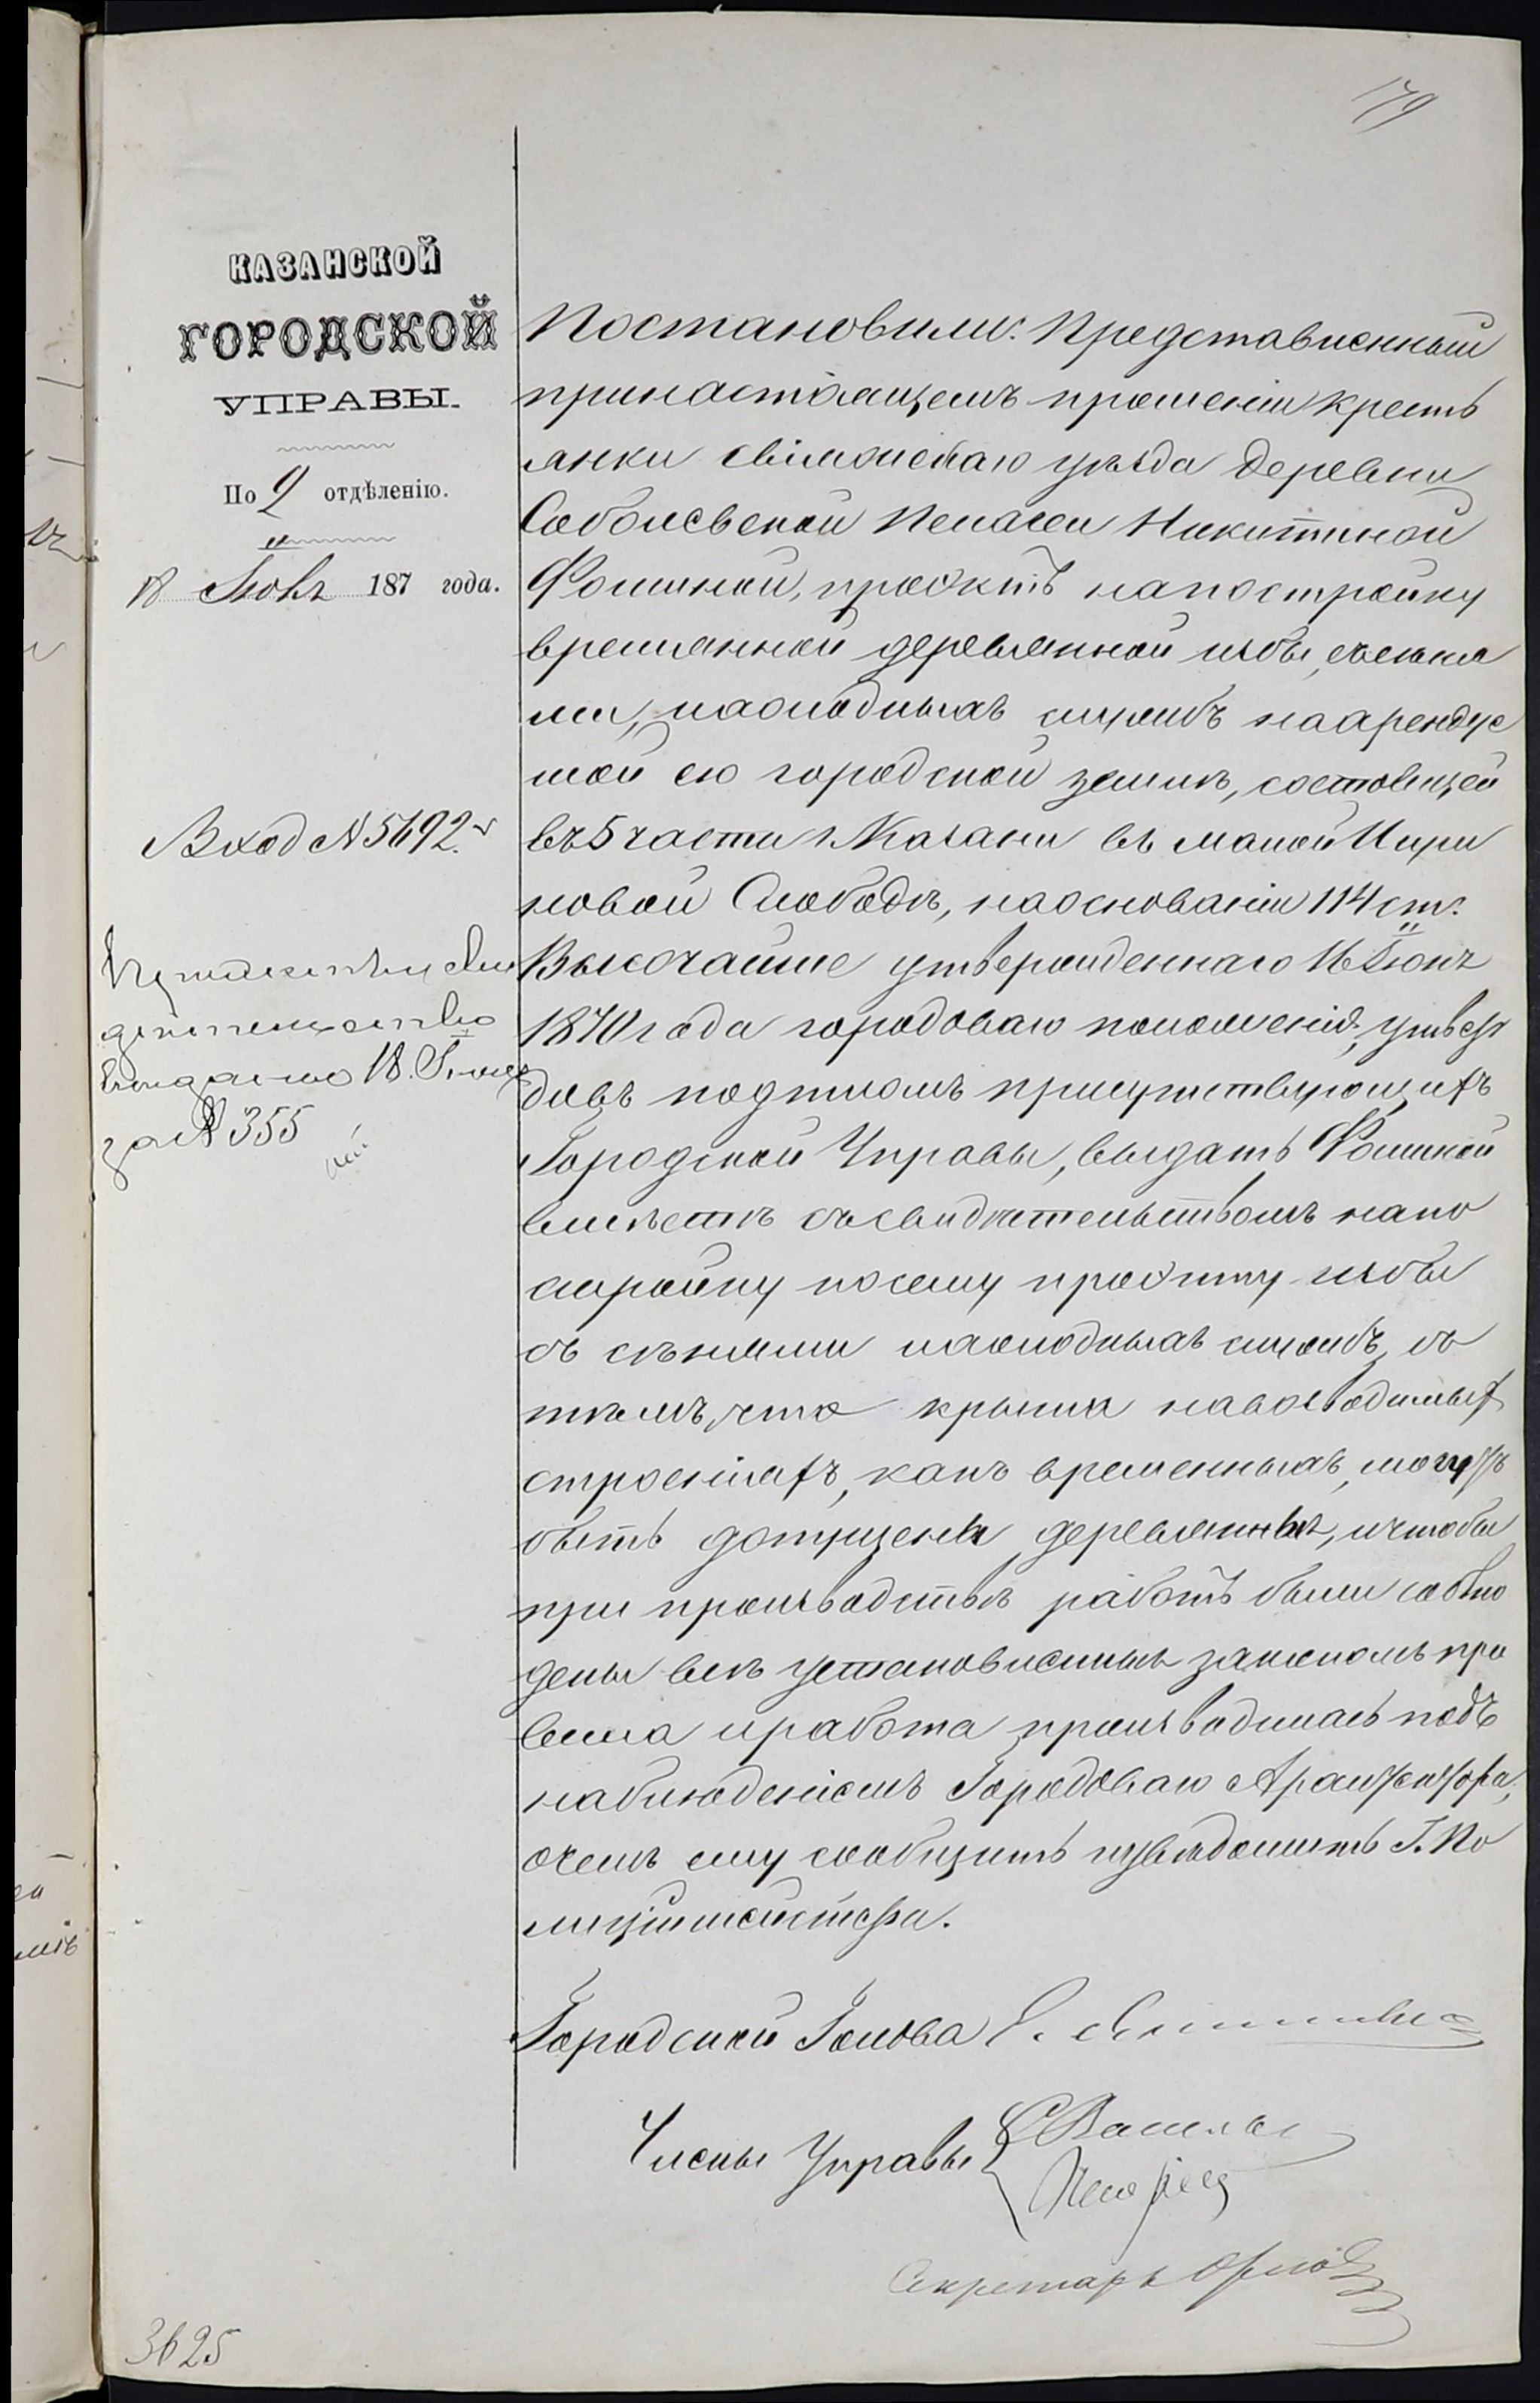 179
КАЗАНСКОЙ
ГОРОДСКОЙ
УПРАВЫ.
По 2 отдѣленію.
18 Іюня 187 года.
Вход № 5692.
выдано 18 Іюня
за № 355
Постановили: Представленный
при настоящемъ прошеніи кресть
янки Свіяжскаго уѣзда деревни
Соболевской Пелагеи Никитиной
Фоминой, проэктъ на постройку
времянной деревянной избы, съ сѣня
ми, и холодныхъ службъ на арендуе
мой ею городской землѣ, состоящей
въ 5 части г. Казани въ малой Игум
новой Слободѣ, на основаніи 114 ст.
Высочайше утвержденнаго 16 Іюня
1870 года городоваго положенія, утвер
дивъ подписомъ присутствующихъ
Городской Управы, выдать Фоминой
вмѣстѣ съ свидѣтельствомъ на по
стройку по сему проэкту избы
съ сѣнями и холодныхъ службъ, съ
тѣмъ, что крыши на возводимыхъ
строеніяхъ, какъ временныхъ, могутъ
быть допущены деревянныя, и чтобы
при производствѣ работъ были соблю
дены всѣ установленныя закономъ пра
вила и работа производилась подъ
наблюденіемъ Городоваго Архитектора,
о чемъ ему сообщить и увѣдомить Г. По
лиціймейстера.
Городской Голова
Члены Управы
Секретарь Орловъ
3625